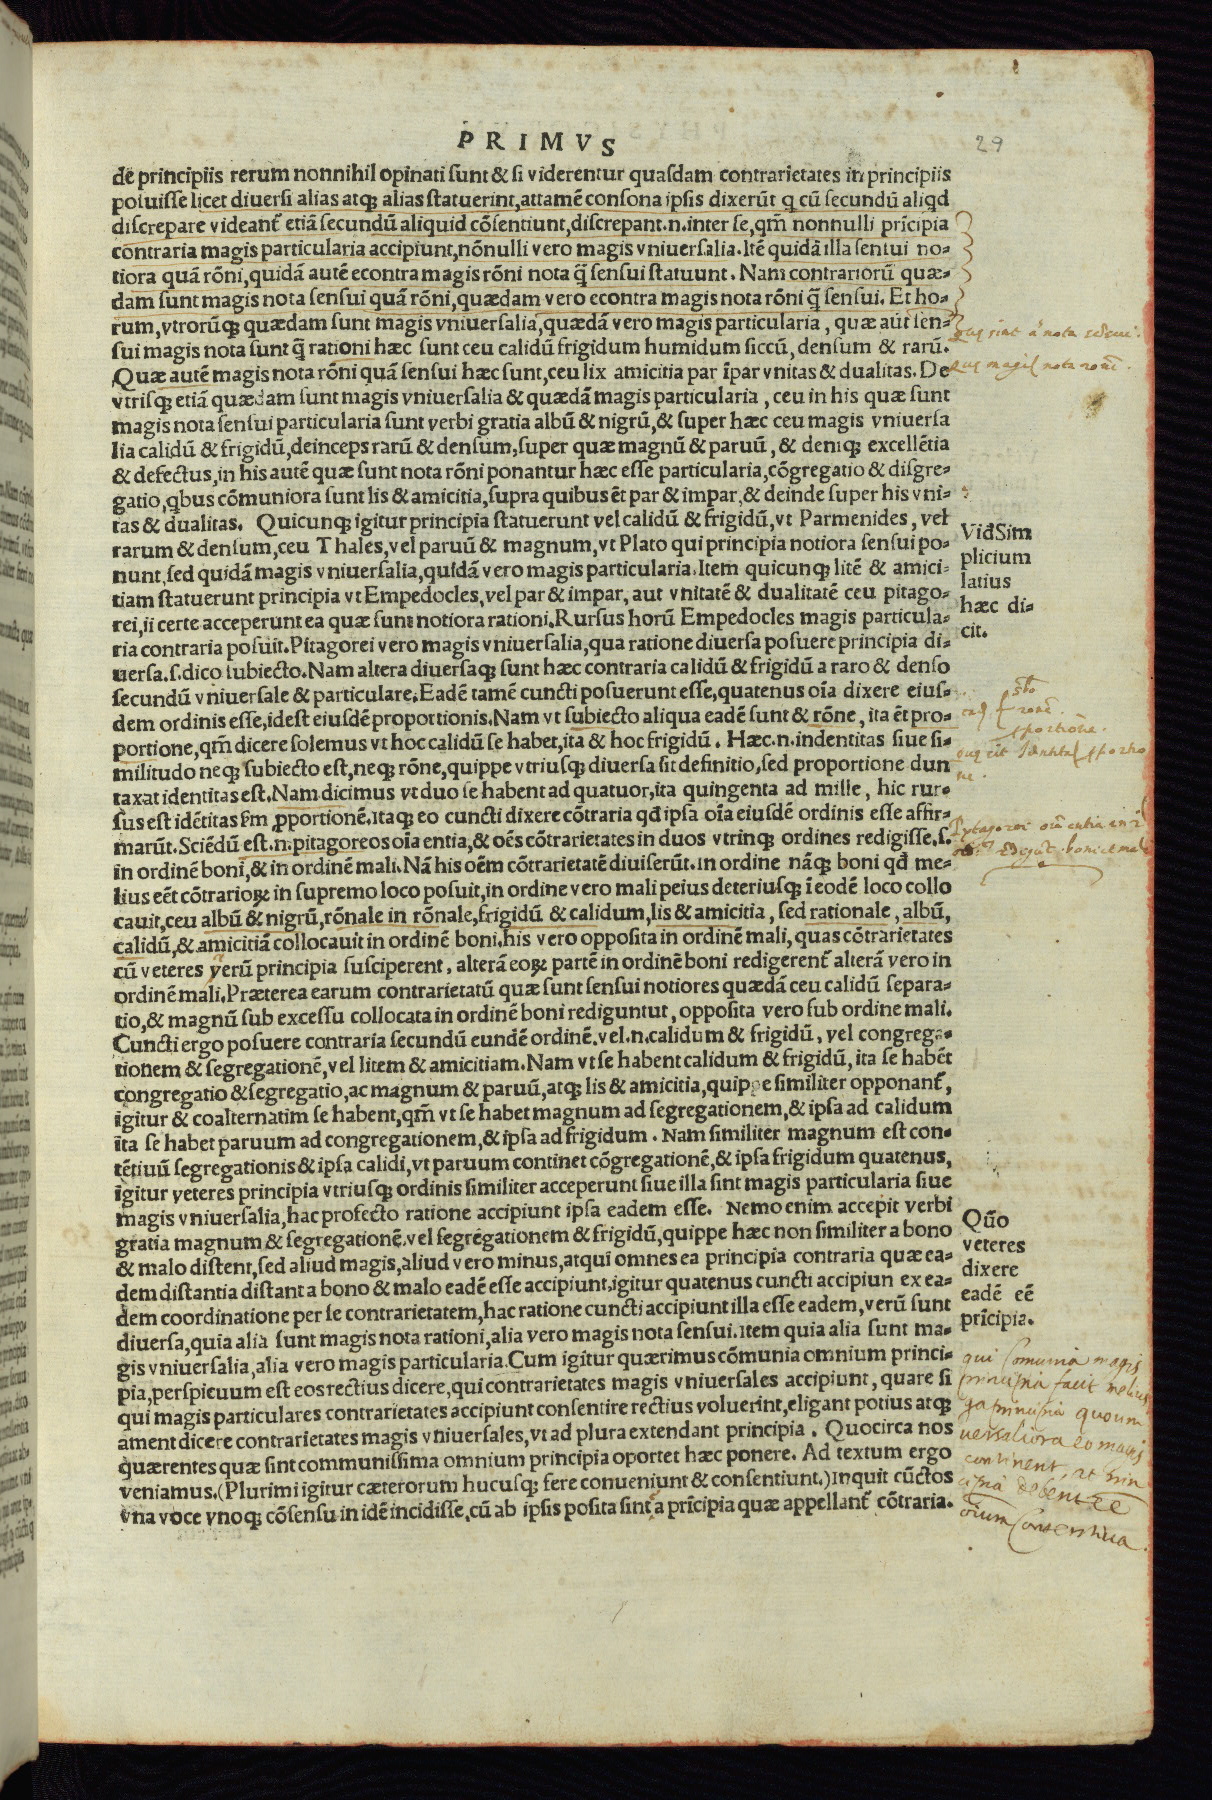 PRIMVS
29
de principiis rerum nonnihil opinati sunt & si viderentur quasdam contrarietates in principiis
posuisse licet diuersi alias atq; alias statuerint, attamē consona ipsis dixerūt q cū secundū aliqd
discrepare videant̄ etiā secundū aliquid cōsentiunt, discrepant .n. inter se, qm̄ nonnulli prīcipia
contraria magis particularia accipiunt, nōnulli vero magis vniuersalia. Itē quidā illa sensui no-
tiora quā rōni, quidā autē econtra magis rōni nota q̄ sensui statuunt. Nam contrariorū quæ-
dam sunt magis nota sensui quā rōni, quædam vero econtra magis nota rōni q̄ sensui. Et ho-
rum, vtrorūq; quædam sunt magis vniuersalia, quædā vero magis particularia, quæ aūt sen-
sui magis nota sunt q̄ rationi hæc sunt ceu calidū frigidum humidum siccū, densum & rarū.
Quæ autē magis nota rōni quā sensui hæc sunt, ceu lix amicitia par īpar vnitas & dualitas. De
vtrisq; etiā quædam sunt magis vniuersalia & quædā magis particularia, ceu in his quæ sunt
magis nota sensui particularia sunt verbi gratia albū & nigrū, & super hæc ceu magis vniuersa
lia calidū & frigidū, deinceps rarū & densum, super quæ magnū & paruū, & deniq; excellētia
& defectus, in his autē quæ sunt nota rōni ponantur hæc esse particularia, cōgregatio & disgre-
gatio, qbus cōmuniora sunt lis & amicitia, supra quibus ēt par & impar, & deinde super his vni-
tas & dualitas. Quicunq; igitur principia statuerunt vel calidū & frigidū, vt Parmenides, vel
rarum & densum, ceu Thales, vel paruū & magnum, vt Plato qui principia notiora sensui po-
nunt, sed quidā magis vniuersalia, quidā vero magis particularia. Item quicunq; litē & amici-
tiam statuerunt principia vt Empedocles, vel par & impar, aut vnitatē & dualitatē ceu pitago-
rei, ii certe acceperunt ea quæ sunt notiora rationi. Rursus horū Empedocles magis particula-
ria contraria posuit. Pitagorei vero magis vniuersalia, qua ratione diuersa posuere principia di-
uersa. s. dico subiecto. Nam altera diuersaq; sunt hæc contraria calidū & frigidū a raro & denso
secundū vniuersale & particulare. Eadē tamē cuncti posuerunt esse, quatenus oīa dixere eius-
dem ordinis esse, idest eiusdē proportionis. Nam vt subiecto aliqua eadē sunt & rōne, ita ēt pro-
portione, qm̄ dicere solemus vt hoc calidū se habet, ita & hoc frigidū. Hæc .n. indentitas siue si-
militudo neq; subiecto est, neq; rōne, quippe vtriusq; diuersa sit definitio, sed proportione dun
taxat identitas est. Nam dicimus vt duo se habent ad quatuor, ita quingenta ad mille, hic rur-
sus est idētitas s̄m ꝓportionē. Itaq; eo cuncti dixere cōtraria qd ipsa oīa eiusdē ordinis esse affir-
marūt. Sciēdū est .n. pitagoreos oīa entia, & oēs cōtrarietates in duos vtrinq; ordines redigisse. s.
in ordinē boni, & in ordinē mali. Nā his oēm cōtrarietatē diuiserūt. In ordine nāq; boni qd me-
lius eēt cōtrarioꝝ in supremo loco posuit, in ordine vero mali peius deteriusq; ī eodē loco collo
cauit, ceu albū & nigrū, rōnale in rōnale, frigidū & calidum, lis & amicitia, sed rationale, albū,
calidū, & amicitiā collocauit in ordinē boni, his vero opposita in ordinē mali, quas cōtrarietates
cū veteres yerū principia susciperent, alterā eoꝝ partē in ordinē boni redigerent̄ alterā vero in
ordinē mali. Præterea earum contrarietatū quæ sunt sensui notiores quædā ceu calidū separa-
tio, & magnū sub excessu collocata in ordinē boni rediguntut, opposita vero sub ordine mali.
Cuncti ergo posuere contraria secundū eundē ordinē. vel .n. calidum & frigidū, vel congrega-
tionem & segregationē, vel litem & amicitiam. Nam vt se habent calidum & frigidū, ita se habēt
congregatio & segregatio, ac magnum & paruū, atq; lis & amicitia, quippe similiter opponant̄,
igitur & coalternatim se habent, qm̄ vt se habet magnum ad segregationem, & ipsa ad calidum
ita se habet paruum ad congregationem, & ipsa ad frigidum. Nam similiter magnum est con-
tētiuū segregationis & ipsa calidi, vt paruum continet cōgregationē, & ipsa frigidum quatenus,
igitur veteres principia vtriusq; ordinis similiter acceperunt siue illa sint magis particularia siue
magis vniuersalia, hac profecto ratione accipiunt ipsa eadem esse. Nemo enim accepit verbi
gratia magnum & segregationē. vel segregationem & frigidū, quippe hæc non similiter a bono
& malo distent, sed aliud magis, aliud vero minus, atqui omnes ea principia contraria quæ ea-
dem distantia distant a bono & malo eadē esse accipiunt. igitur quatenus cuncti accipiun ex ea-
dem coordinatione per se contrarietatem, hac ratione cuncti accipiunt illa esse eadem, verū sunt
diuersa, quia alia sunt magis nota rationi, alia vero magis nota sensui. Item quia alia sunt ma-
gis vniuersalia, alia vero magis particularia. Cum igitur quærimus cōmunia omnium princi-
pia, perspicuum est eos rectius dicere, qui contrarietates magis vniuersales accipiunt, quare si
qui magis particulares contrarietates accipiunt consentire rectius voluerint, eligant potius atq;
ament dicere contrarietates magis vniuersales, vt ad plura extendant principia. Quocirca nos
quærentes quæ sint communissima omnium principia oportet hæc ponere. Ad textum ergo
veniamus. (Plurimi igitur cæterorum hucusq; fere conueniunt & consentiunt.) Inquit cūctos
vna voce vnoq; cōsensu in idē incidisse, cū ab ipsis posita sint a prīcipia quæ appellant̄ cōtraria.
magis nota roni.
Vid Sim
plicium
latius
hæc di-
cit.
Pytagorei
Qūo
veteres
dixere
eadē eē
prīcipia.
qui Comunia magis
principia facit melius
principia
continent